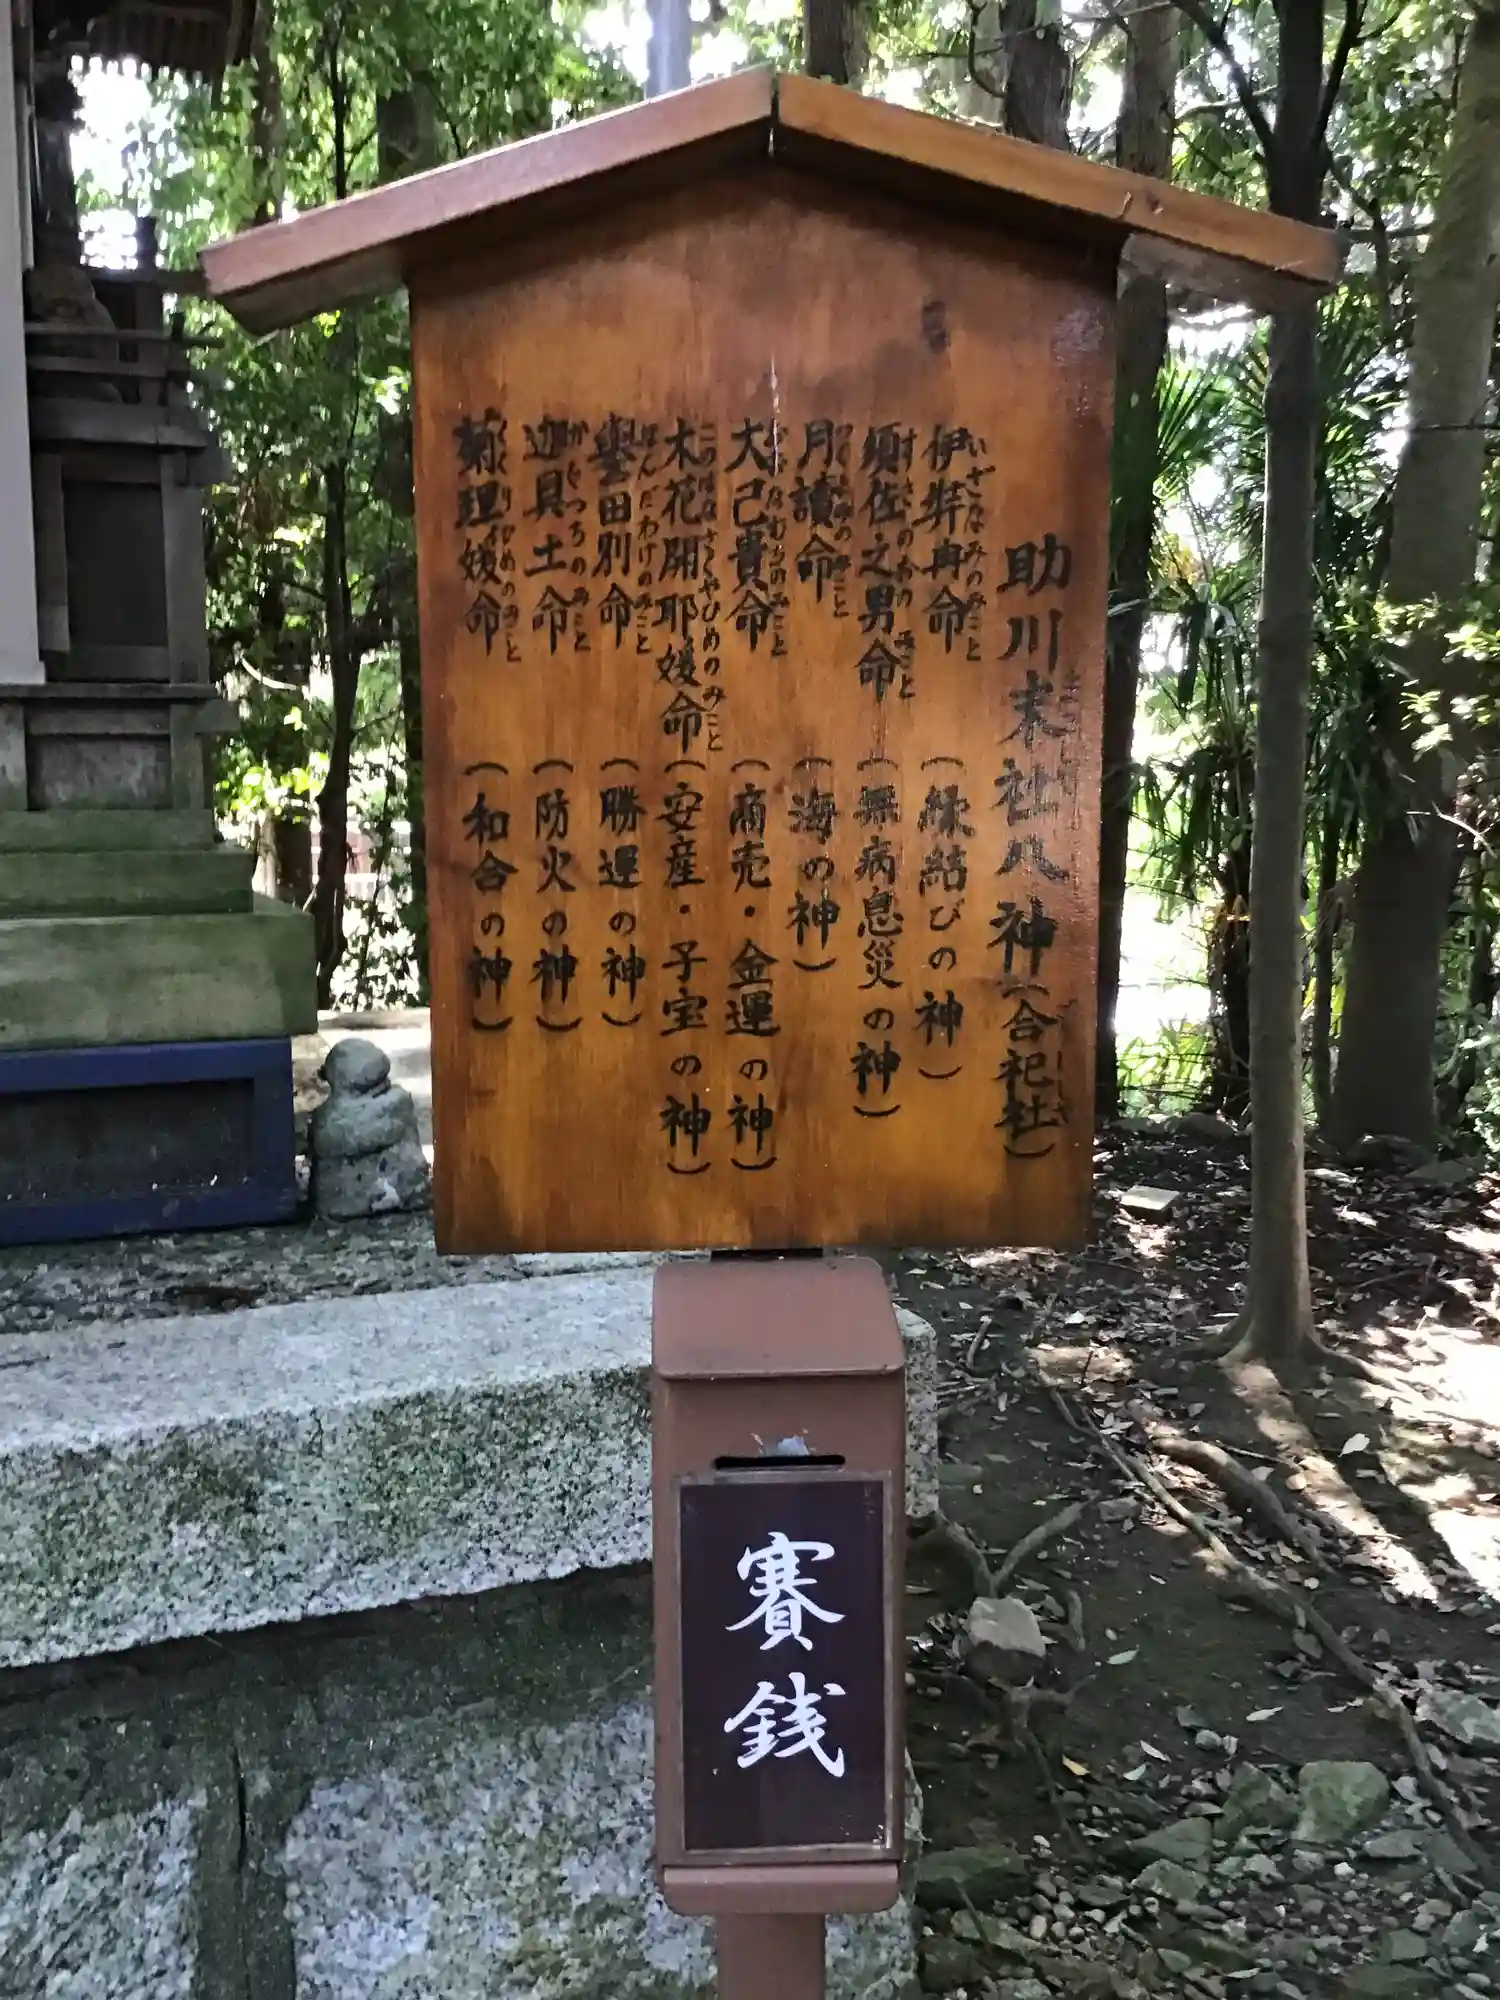 助川末社八神(合祀社)
伊弉冉命(縁結びの神)
いざなみのみこと
須佐之男命(無病息災の神)
すさのおのみこと
月讀命(海の神)
つくよみのみこと
大己貴命(商売・金運の神)
おおなむちのみこと
木花開耶媛命(安産・子宝の神)
このはなさくやひめのみこと
譽田別命(勝運の神)
ほんだわけのみこと
迦具土命(防火の神)
かぐつちのみこと
菊理媛命(和合の神)
くくりひめのみこと
賽銭